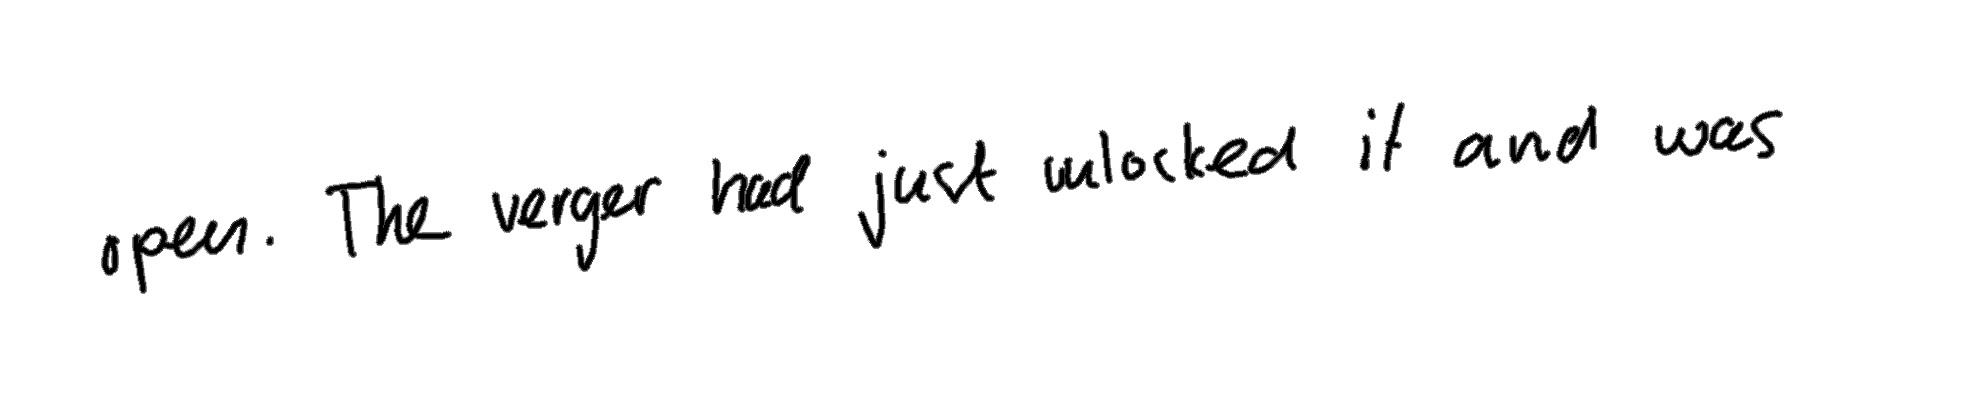 open. The verger had just unlocked it and was